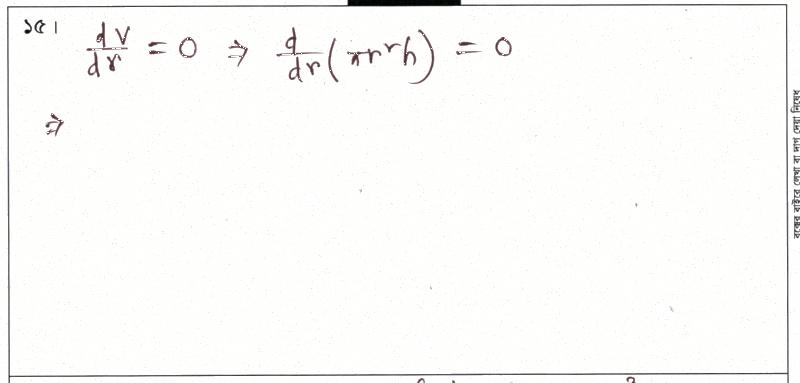 ১৫। dV/dr = 0 ⇒ d/dr (πr²h) = 0
⇒
বক্সের বাইরে লেখা বা দাগ দেয়া নিষেধ